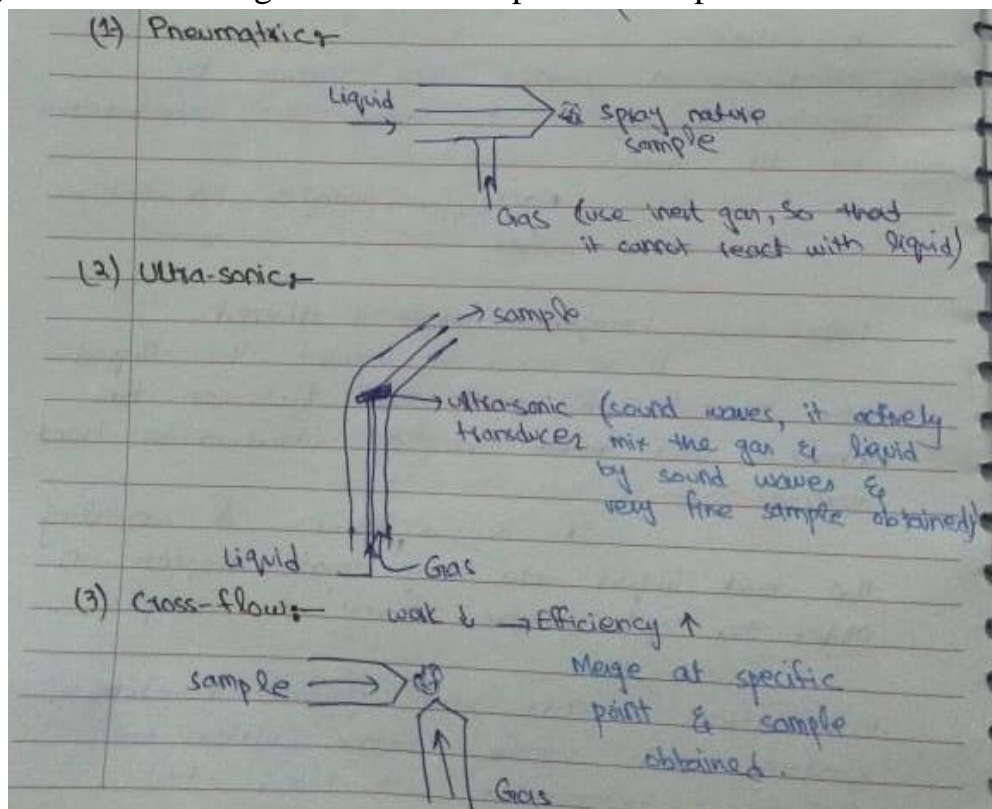 (1) Pneumatric:-
Liquid
spray nature
sample
Gas (use inert gas, so that
it cannot react with liquid)
(2) Ultra-sonic:-
→ sample
→ ultra-sonic (sound waves, it actively
transducer mix the gas & liquid
by sound waves &
very fine sample obtained)
Liquid Gas
(3) Cross-flow:- wak ↓ → Efficiency ↑
sample Merge at specific
point & sample
obtained.
Gas